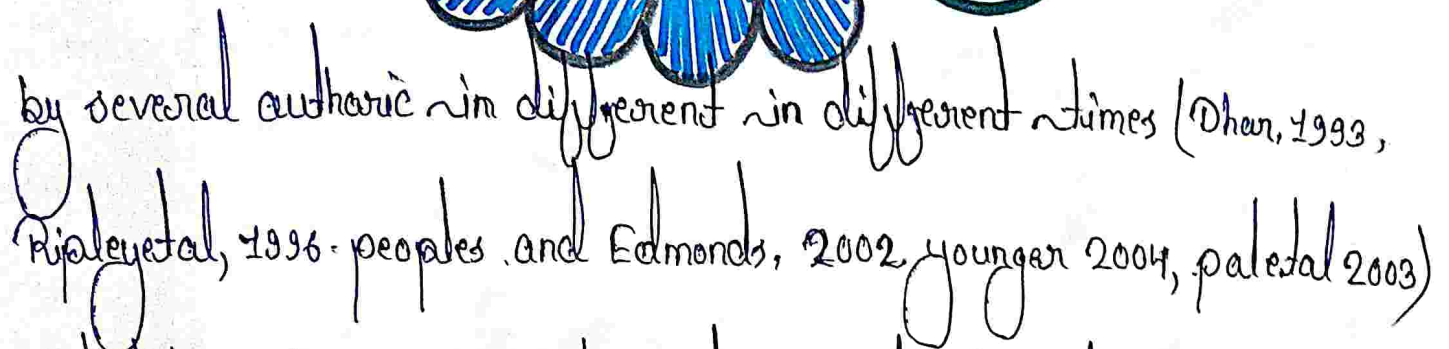 by several autharic in different in different times (Dhar, 1993,
Ripleyetal, 1996. peoples and Edmonds, 2002, younger 2004, paletal 2003)